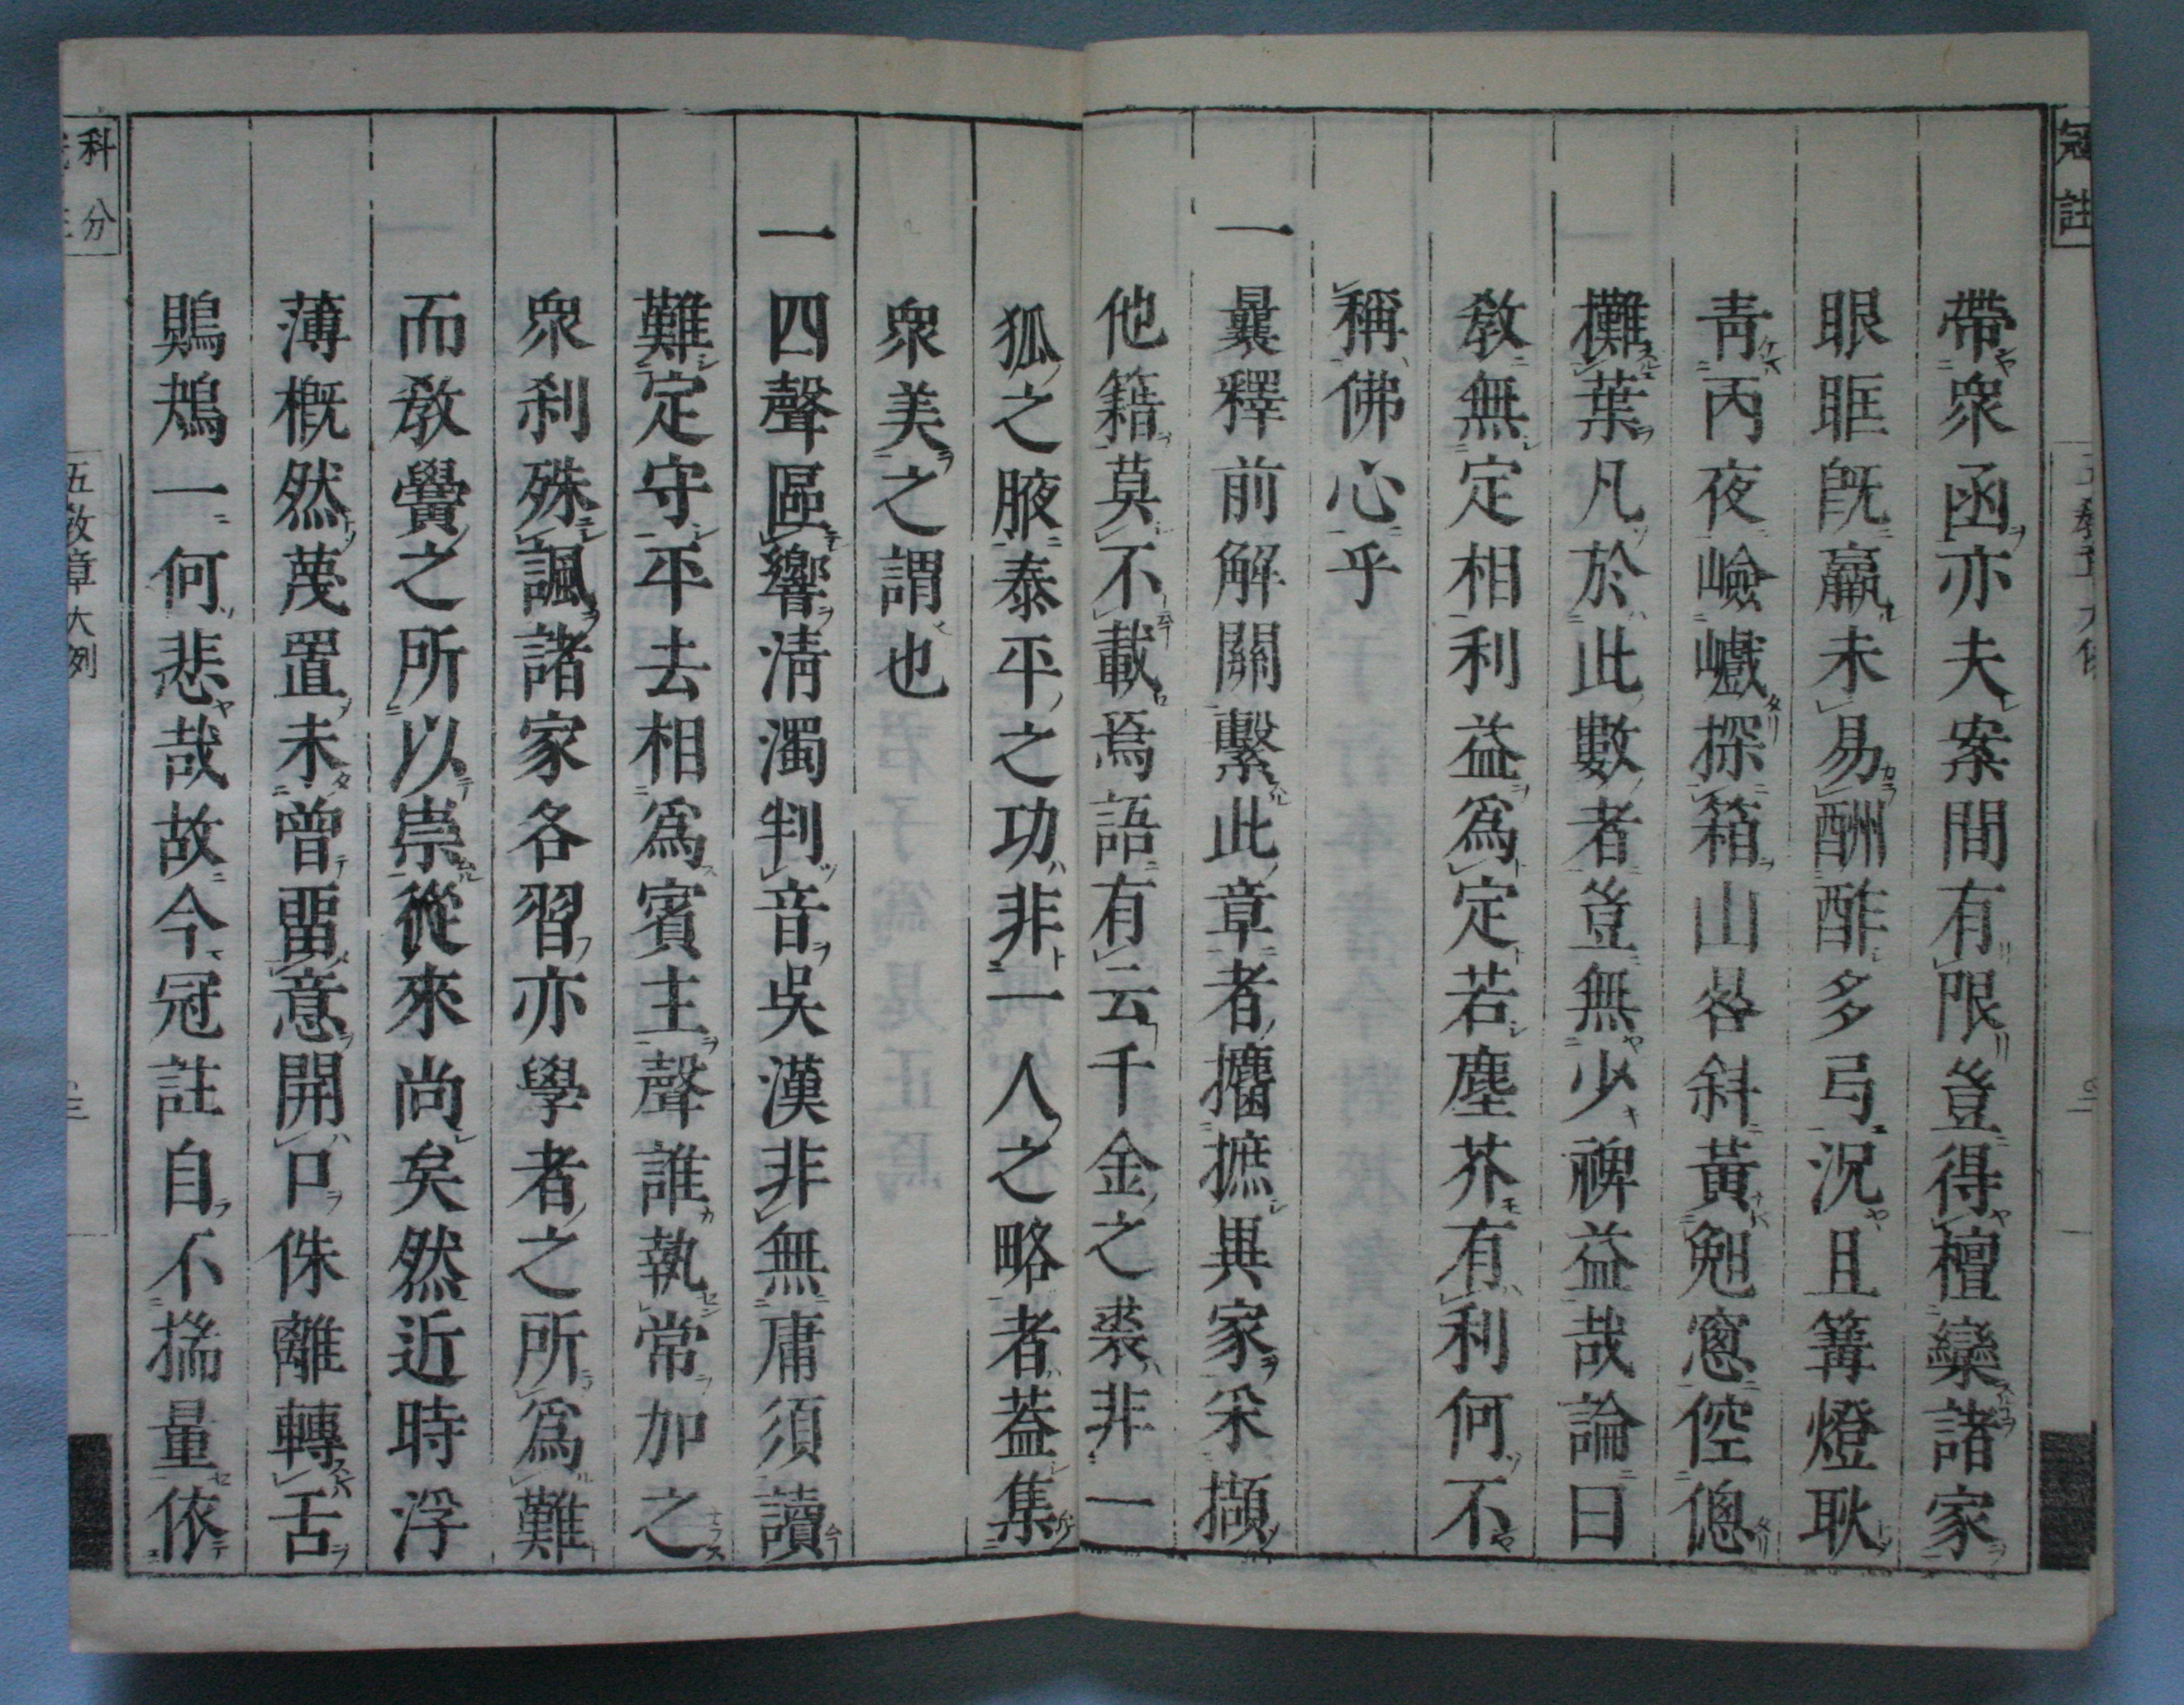 冠註
帶衆函亦夫案間有限豈得檀欒諸家
眼眶既羸未易酬酢多弓況且篝燈耿
靑丙夜嶮巇探箱山畧斜黃兔窓倥傯
攤葉凡於此數者豈無少裨益哉論曰
敎無定相利益爲定若塵芥有利何不
稱佛心乎
一曩釋前解關繫此章者攟摭異家采擷
他籍莫不載焉語有云千金之裘非一
狐之腋泰平之功非一人之略者蓋集
衆美之謂也
一四聲區響淸濁判音吳漢非無庸須讀
難定守平去相爲賓主聲誰執常加之
衆刹殊諷諸家各習亦學者之所爲難
而敎黌之所以崇從來尚矣然近時浮
薄槪然蔑置未曾畱意開口侏離轉舌
鴂一何悲哉故今冠註自不揣量依
科分
五敎章大例